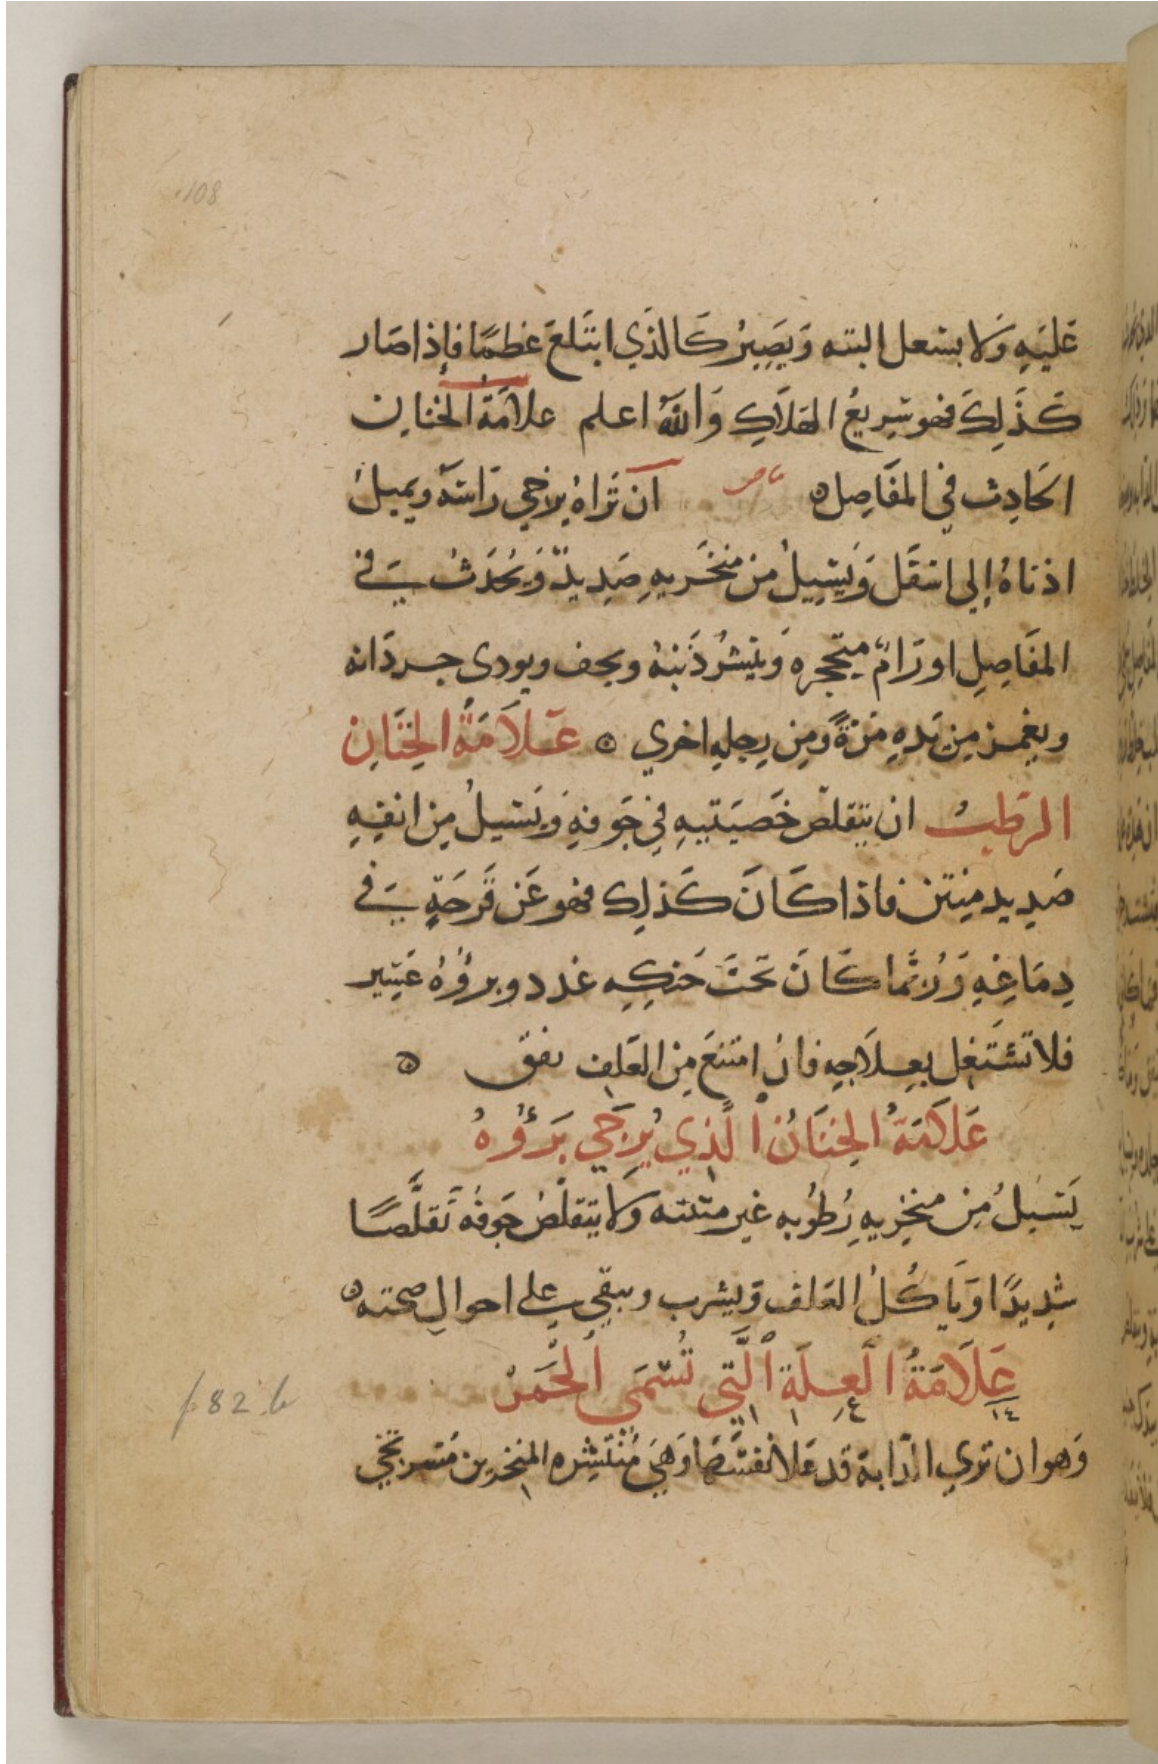 108
عَليَهِ وَلا يسعل البته وَيَصِيرُ كَالذَي ابتَلعَ عَظمًا فإذا صَار
كَذَلِكَ فهو سَرِيعُ الهَلاَكِ وَاللهُ اعلم علاَمَةُ الخنَان
الحَادِث في المفَاصِل ان تَرَاهُ يرخي رَاسَهُ ويميلُ
اذناهُ إلى اسَفَل وَيَسِيلُ من منخَريهِ صَدِيدٌ وَيحُدَثُ في
المفَاصِلِ اورَامٌ متحجره وَينتشرُ ذَنبَهُ ويجف ويودى جردَانه
ويغمز من يَدهِ مَرَةً ومِن رِجلِهِ اخري عَلاَمَةُ الخنَانِ
الرَطبُ ان يتقلصّ خَصيَتيهِ في جَوفهِ وَيَسيلُ مِن انفِهِ
صَدِيد مِنتن فاذا كَانَ كَذلِك فهو عَن قَرحَةٍ في
دِمَاغِهِ وَرُبَّما كَانَ تَحتَ حَنكِهِ غدد وبرؤهُ عَسِير
فلا تشتَغِل بعِلاَجِهِ فان امتنعَ مِن العَلف نفق
عَلاَمَةُ الخنَانُ الَّذي يُرجَي بَرؤُهُ
يَسيلُ مِن منخِريهِ رُطوُبه غير منتنه وَلا يتقلصُ جَوفهُ تَقلَّصًا
شِديدًا وَيَاكُلُ العَلف وَيشرب ويبقي علي احوالِ صحته
عَلاَمَةُ الَعِلَةِ الَّتِي تُسَمَي الُحَمَرْ
f. 82. b
وَهو ان تري الدّابة قد عَلا نَفسَهَا وَهيَ مُنْتَشِره المنخرين مَسترخي